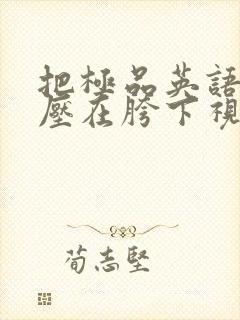 把極品英語
壓在胯下視
荀志堅